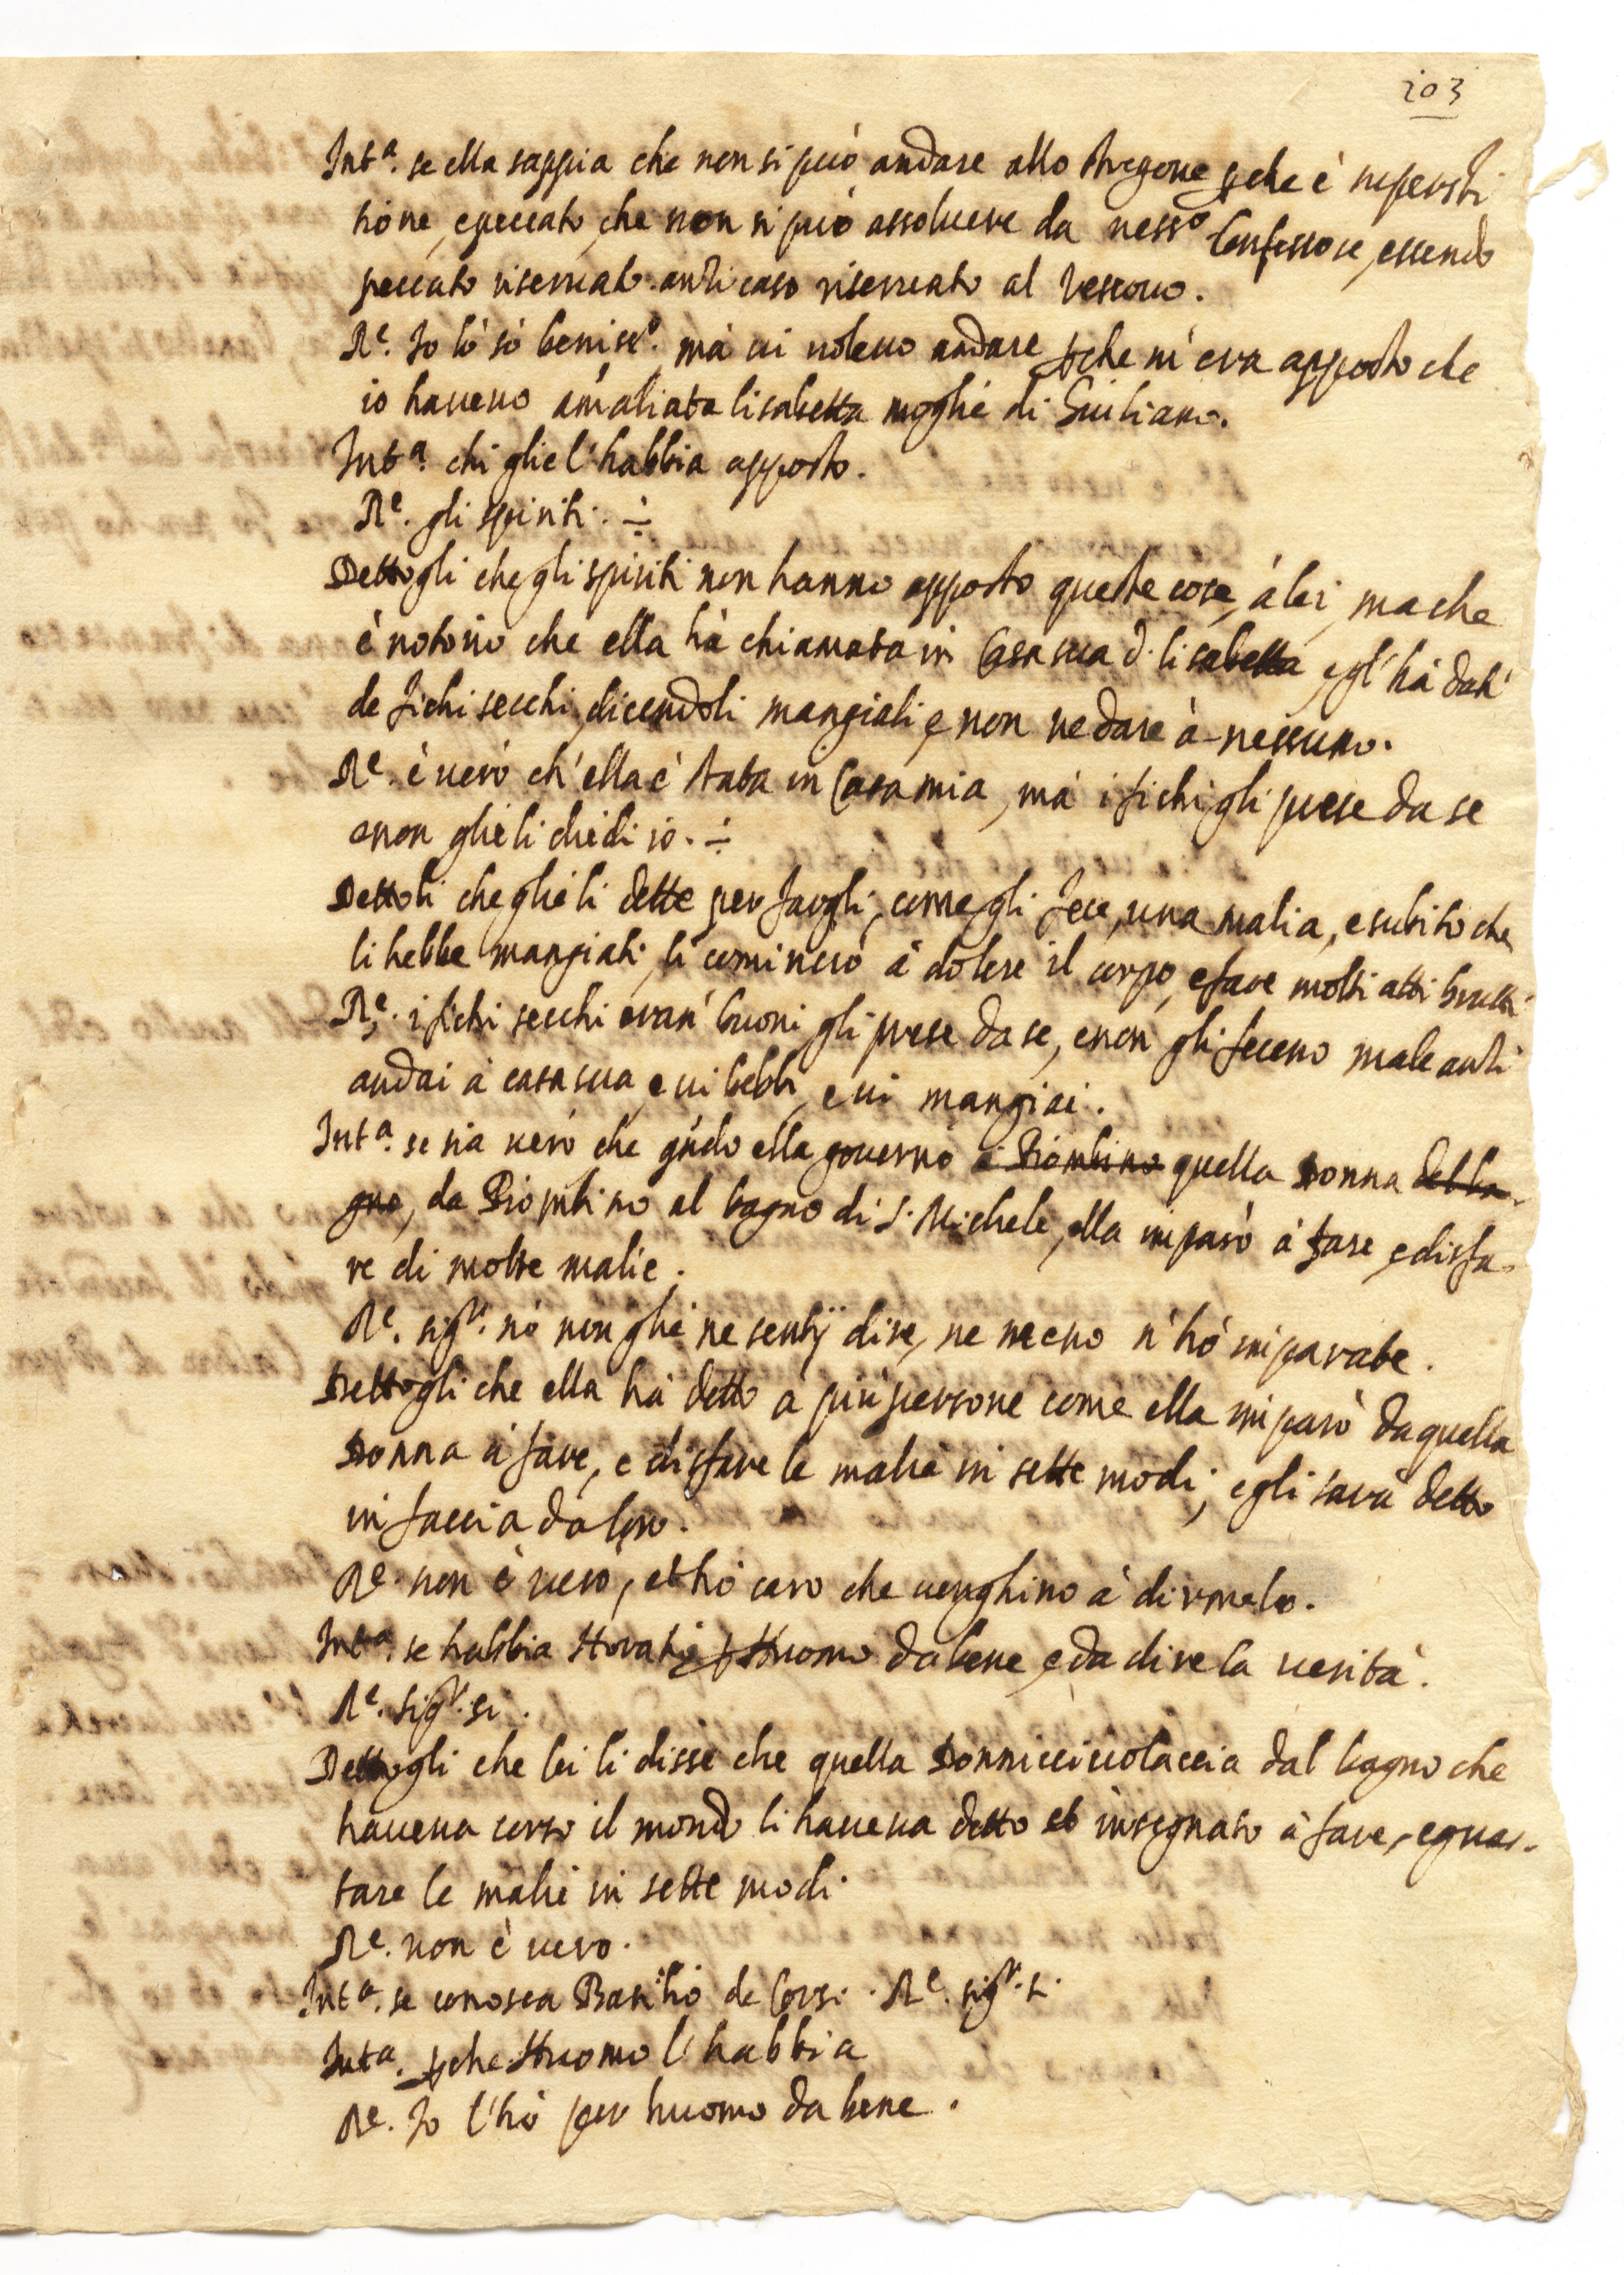 103
Int.a se ella sappia che non si può andare allo stregone p che è supersti
tione, e peccato, che non si può assoluere da ness.o Confessore, essendo
peccato riseruato anzi caso riseruato al Vescouo.
R.e Io lò sò beniss.o mà ui uoleuo andare p che m'era apposto che
io haueuo amaliata lisabetta moglie di Giuliano.
Int.a chi glie l'habbia apposto.
R.e gli spiriti. ÷
Dettogli che gli spiriti non hanno apposto queste cose à lei, ma che
è notorio che ella hà chiamata in Casa sua d. lisabetta, e gl'hà dati
de fichi secchi, dicendoli mangiali, e non ne dare à nessuno.
R.e è uero ch'ella è stata in Casa mia, mà i fichi gli prese da se
e non glie li diedi io. ÷
Dettoli che glie li dette per fargli, come gli fece, una malia, e subito che
li hebbe mangiati, li cominciò à dolere il corpo, e fare molti atti brutti
R.e i fichi secchi eran' buoni gli prese da se, e non gli feceno male anzi
andai à casa sua, e ui bebbi, e ui mangiai.
Int.a se sia uero che q̃ndo ella gouernò à Piombino quella Donna del ba-
gno, da Piombino al bagno di S. Michele, ella imparò à fare, e disfa-
re di molte malie.
R.e sig.r nò non glie ne sentij dire, ne meno n'hò imparate.
Dettogli che ella hà detto à più persone come ella imparò da quella
Donna à fare, e disfare le malie in sette modi, e gli sarà detto
in faccia da loro.
R.e non è uero, et hò caro che uenghino à dirmelo.
Int.a se habbia Horatio p Huomo da bene, e da dire la uerità.
R.e sig.r si.
Dettogli che lei li disse che quella Donnicciuolaccia dal bagno che
haueua corso il mondo li haueua detto et insegnato à fare, e guas-
tare le malie in sette modi.
R.e non è uero.
Int.a se conosca Basilio de Corsi. R.e sig.r si.
Int.a p che Huomo l'habbia
R.e Io l'hò per huomo da bene.